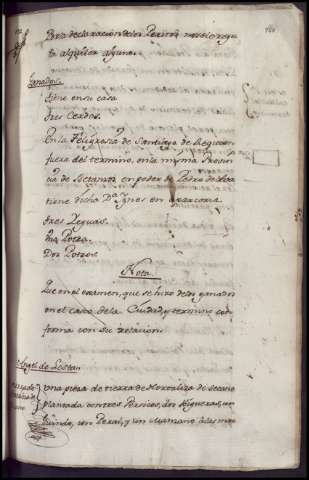 Por la declaracion de los Peritos no se le regu
la alquiler alguno.
Ganados
tiene en su casa
tres Cerdos.
En la feligresia de Santiago de Requian
fuera del termino, en la misma Provin
cia de Betanzos, en poder de Pedro de
tiene dicha Dª Ygnes en aparceria
tres Yeguas.
Una Potra.
Dos Potros.
Nota
Que en el examen, que se hizo de los ganados
en el casco de la Ciudad, y termino con
forma con su relacion.
Angel de Lestan
Una pieza de tierra de Hortaliza de secano
plantada con tres Persicos, dos Higueras, un
Guindo, un Peral, y un Manzano a dos